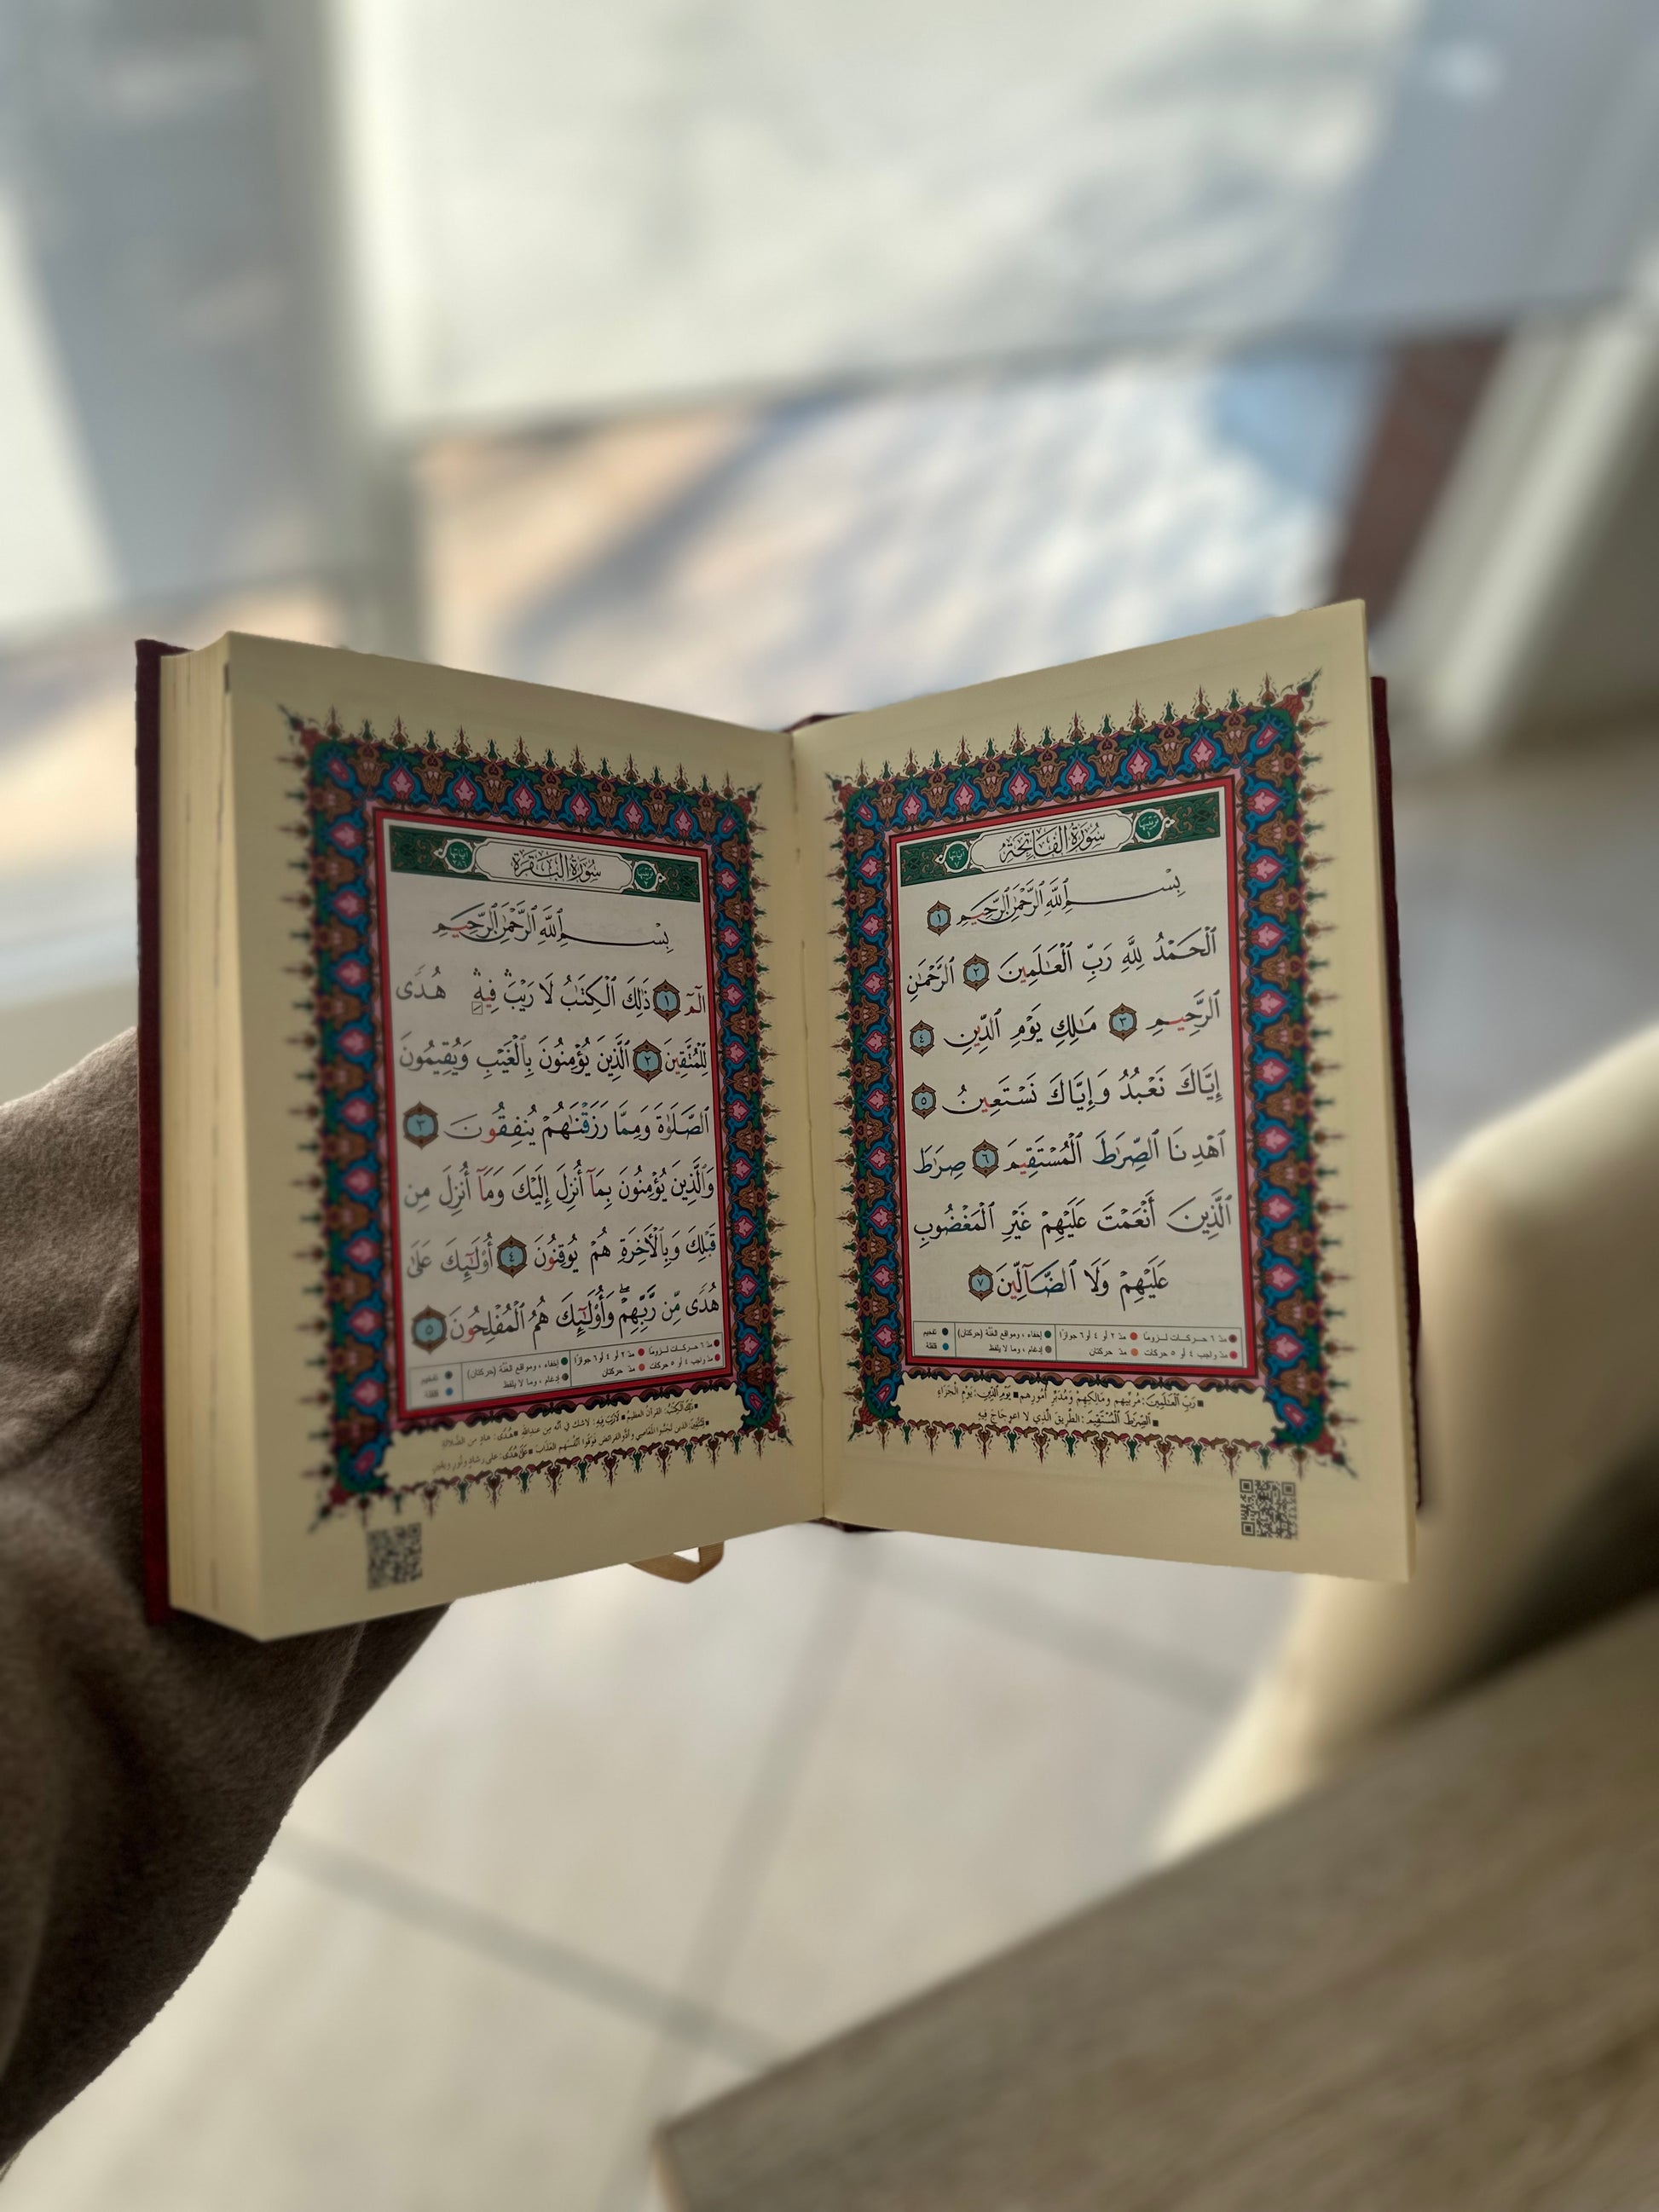 سُورَةُ الفَاتِحَةِ
بِسْمِ ٱللَّهِ ٱلرَّحْمَٰنِ ٱلرَّحِيمِ ١
ٱلْحَمْدُ لِلَّهِ رَبِّ ٱلْعَٰلَمِينَ ٢ ٱلرَّحْمَٰنِ
ٱلرَّحِيمِ ٣ مَٰلِكِ يَوْمِ ٱلدِّينِ ٤
إِيَّاكَ نَعْبُدُ وَإِيَّاكَ نَسْتَعِينُ ٥
ٱهْدِنَا ٱلصِّرَٰطَ ٱلْمُسْتَقِيمَ ٦ صِرَٰطَ
ٱلَّذِينَ أَنْعَمْتَ عَلَيْهِمْ غَيْرِ ٱلْمَغْضُوبِ
عَلَيْهِمْ وَلَا ٱلضَّآلِّينَ ٧
مدّ ٦ حركات لزومًا مدّ ٢ أو ٤ أو ٦ جوازًا إخفاء، ومواقع الغُنَّة (حركتان) تفخيم
مدّ واجب ٤ أو ٥ حركات مدّ حركتان إدغام، وما لا يلفظ قلقلة
رَبِّ ٱلْعَٰلَمِينَ: مُرَبِّيهِم وَمَالِكِهِمْ وَمُدَبِّرِ أُمُورِهِم يَوْمِ ٱلدِّينِ: يَوْمِ الجَزَاءِ
ٱلصِّرَٰطَ ٱلْمُسْتَقِيمَ: الطَّرِيقَ الَّذِي لا اعوِجَاجَ فِيهِ
سُورَةُ البَقَرَةِ
بِسْمِ ٱللَّهِ ٱلرَّحْمَٰنِ ٱلرَّحِيمِ
الٓمٓ ١ ذَٰلِكَ ٱلْكِتَٰبُ لَا رَيْبَ ۛ فِيهِ ۛ هُدًى
لِّلْمُتَّقِينَ ٢ ٱلَّذِينَ يُؤْمِنُونَ بِٱلْغَيْبِ وَيُقِيمُونَ
ٱلصَّلَوٰةَ وَمِمَّا رَزَقْنَٰهُمْ يُنفِقُونَ ٣
وَٱلَّذِينَ يُؤْمِنُونَ بِمَآ أُنزِلَ إِلَيْكَ وَمَآ أُنزِلَ مِن
قَبْلِكَ وَبِٱلْأَخِرَةِ هُمْ يُوقِنُونَ ٤ أُو۟لَٰٓئِكَ عَلَىٰ
هُدًى مِّن رَّبِّهِمْ ۖ وَأُو۟لَٰٓئِكَ هُمُ ٱلْمُفْلِحُونَ ٥
مدّ ٦ حركات لزومًا مدّ ٢ أو ٤ أو ٦ جوازًا إخفاء، ومواقع الغُنَّة (حركتان) تفخيم
مدّ واجب ٤ أو ٥ حركات مدّ حركتان إدغام، وما لا يلفظ قلقلة
ذَٰلِكَ ٱلْكِتَٰبُ: القرآن العظيم لَا رَيْبَ فِيهِ: لا شك في أنَّه من عند الله هُدًى: هادٍ من الضلالة